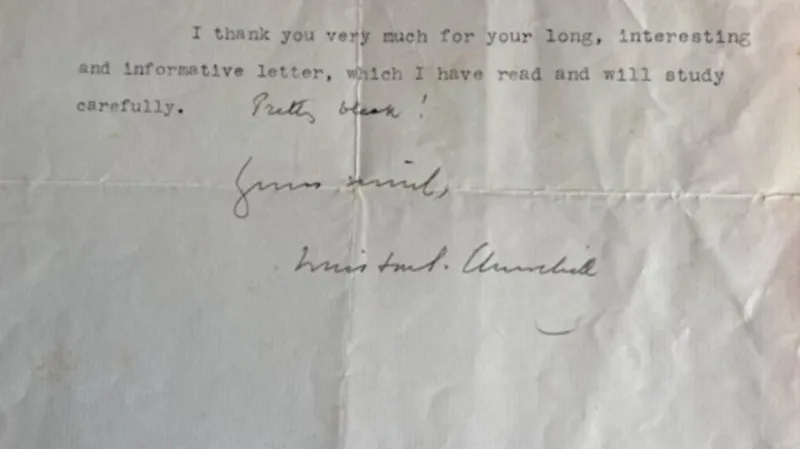 I thank you very much for your long, interesting
and informative letter, which I have read and will study
carefully. Pretty bleak!
Yours sincerely,
Winston S. Churchill